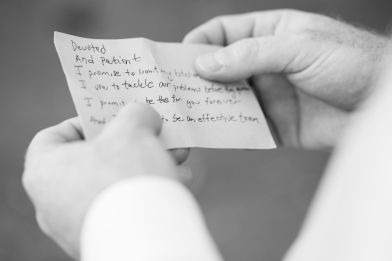 Devoted
And Patient
I promise to limit my
I vow to tackle our problems before
I promise be there for you forever
And to be an effective team